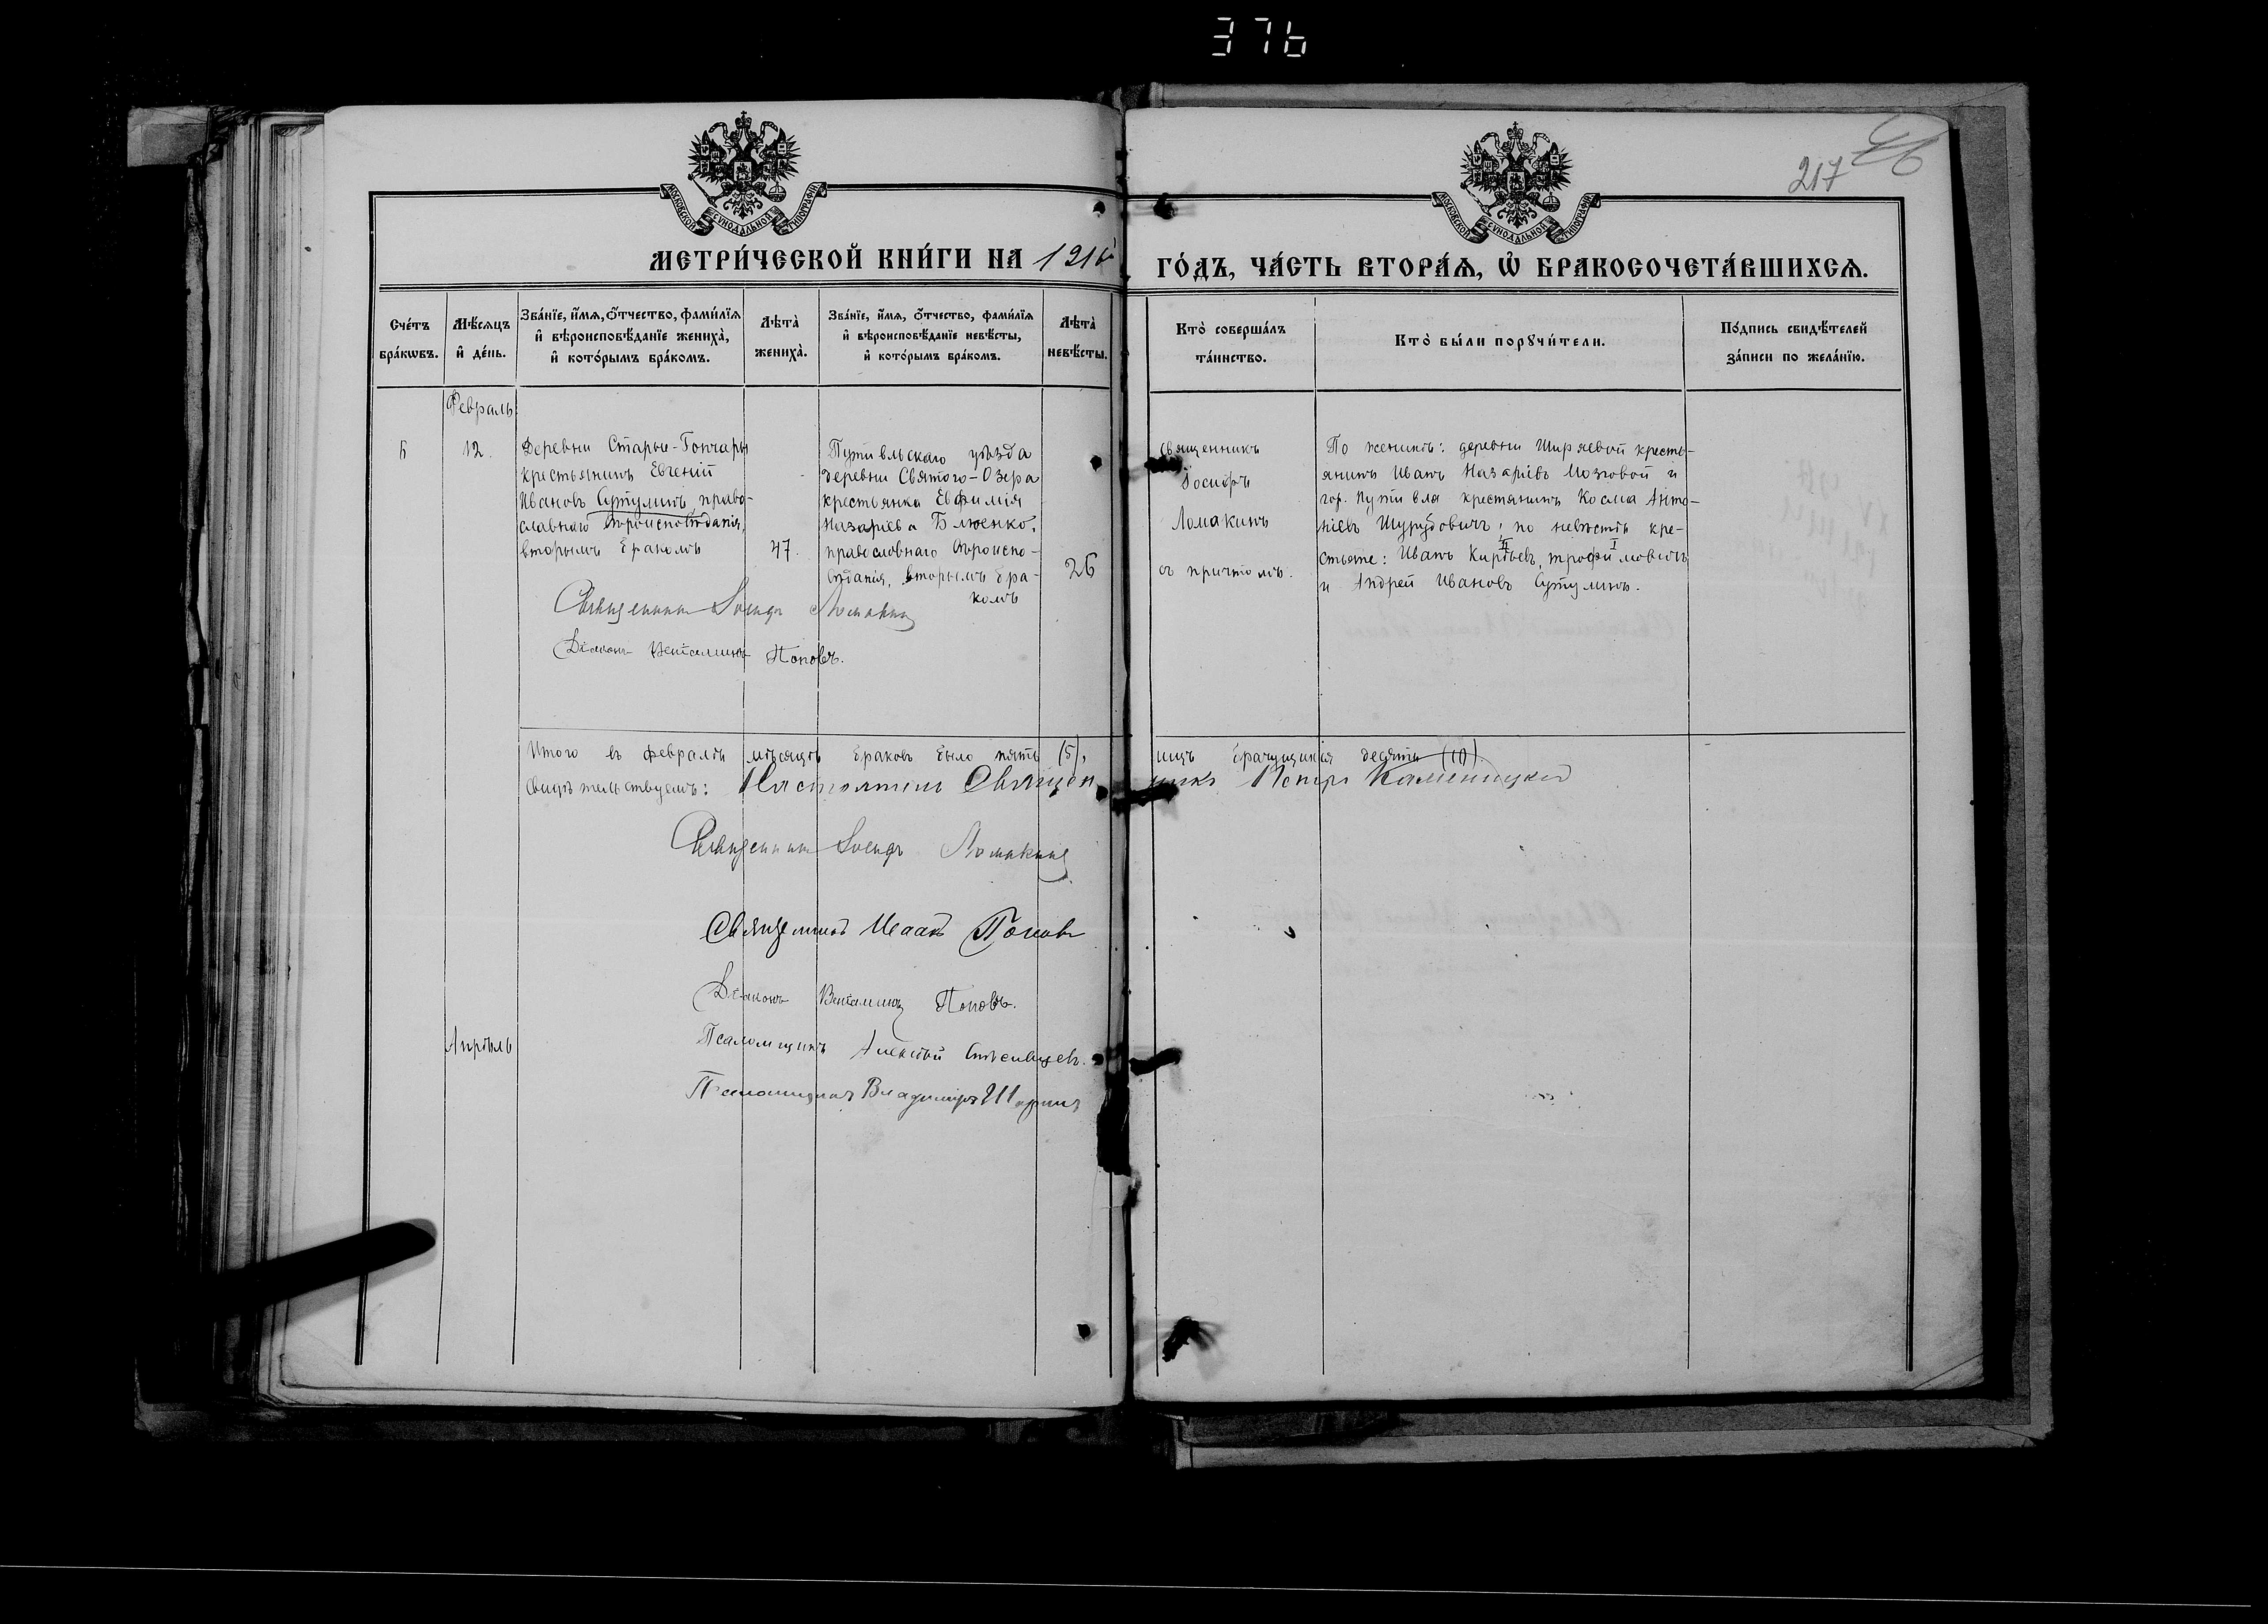 376
217
МОСКОВСКОЙ СѴНОДАЛЬНОЙ ТИПОГРАФІИ
МОСКОВСКОЙ СѴНОДАЛЬНОЙ ТИПОГРАФІИ
МЕТРИ́ЧЕСКОЙ КНИ́ГИ НА
ГО́ДЪ, ЧА́СТЬ ВТОРА́Ѧ, Ѡ҆ БРАКОСОЧЕТА́ВШИХСѦ.
Сче́тъ бра́кѡвъ.
Мѣ́сѧцъ и҆ де́нь.
Зва́нїе, и҆́мѧ, ѻ҆́тчество, фами́лїѧ
и҆ вѣроисповѣ́данїе жениха̀,
и҆ кото́рымъ бра́комъ.
Лѣта̀ жениха̀.
Зва́нїе, и҆́мѧ, ѻ҆́тчество, фами́лїѧ
и҆ вѣроисповѣ́данїе невѣ́сты,
и҆ кото́рымъ бра́комъ.
Лѣта̀ невѣ́сты.
Кто̀ соверша́лъ
та́инство.
Кто̀ бы́ли порꙋчи́тели.
По́дпись свидѣ́телей
за́писи по жела́нїю.
Февраль
6
12.
Деревни Старые-Гончары
крестьянинъ Евгеній
Ивановъ Сутулинъ, право-
славнаго вѣроисповѣданія,
вторымъ бракомъ
47.
Путивльскаго уѣзда
деревни Святого-Озера
крестьянка Евфимія
Назаріева Блюенко,
православнаго вѣроиспо-
вѣданія, вторымъ бра-
комъ
26
священникъ
Іосифъ
Ломакинъ
съ причтомъ.
По женихѣ: деревни Ширяевой кресть-
янинъ Иванъ Назаріевъ Мозговой и
гор. Путивля крестянинъ Косма Анто-
ніевъ Шурубовичъ; по невѣстѣ кре-
стьяне: Иванъ Кирѣевъ Трофимовичъ
и Андрей Ивановъ Сутулинъ.
Священникъ Іосифъ Ломакинъ
Діаконъ Веніаминъ Поповъ.
Итого въ февралѣ мѣсяцѣ браковъ было пять (5),
лицъ брачущихся десять (10).
Свидѣтельствуемъ: Настоятель Священникъ Петръ Каменицкій
Священникъ Іосифъ Ломакинъ
Священникъ Исаакъ Поповъ
Діаконъ Веніаминъ Поповъ.
Апрѣль
Псаломщикъ Алексѣй
Псаломщикъ Владиміръ